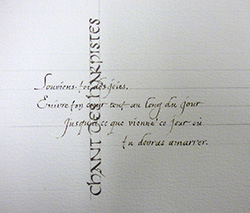 CHANT DES HARPISTES
Souviens-toi des joies.
Enivre ton cœur tout au long du jour
Jusqu'à ce que vienne ce jour où
tu devras amarrer.